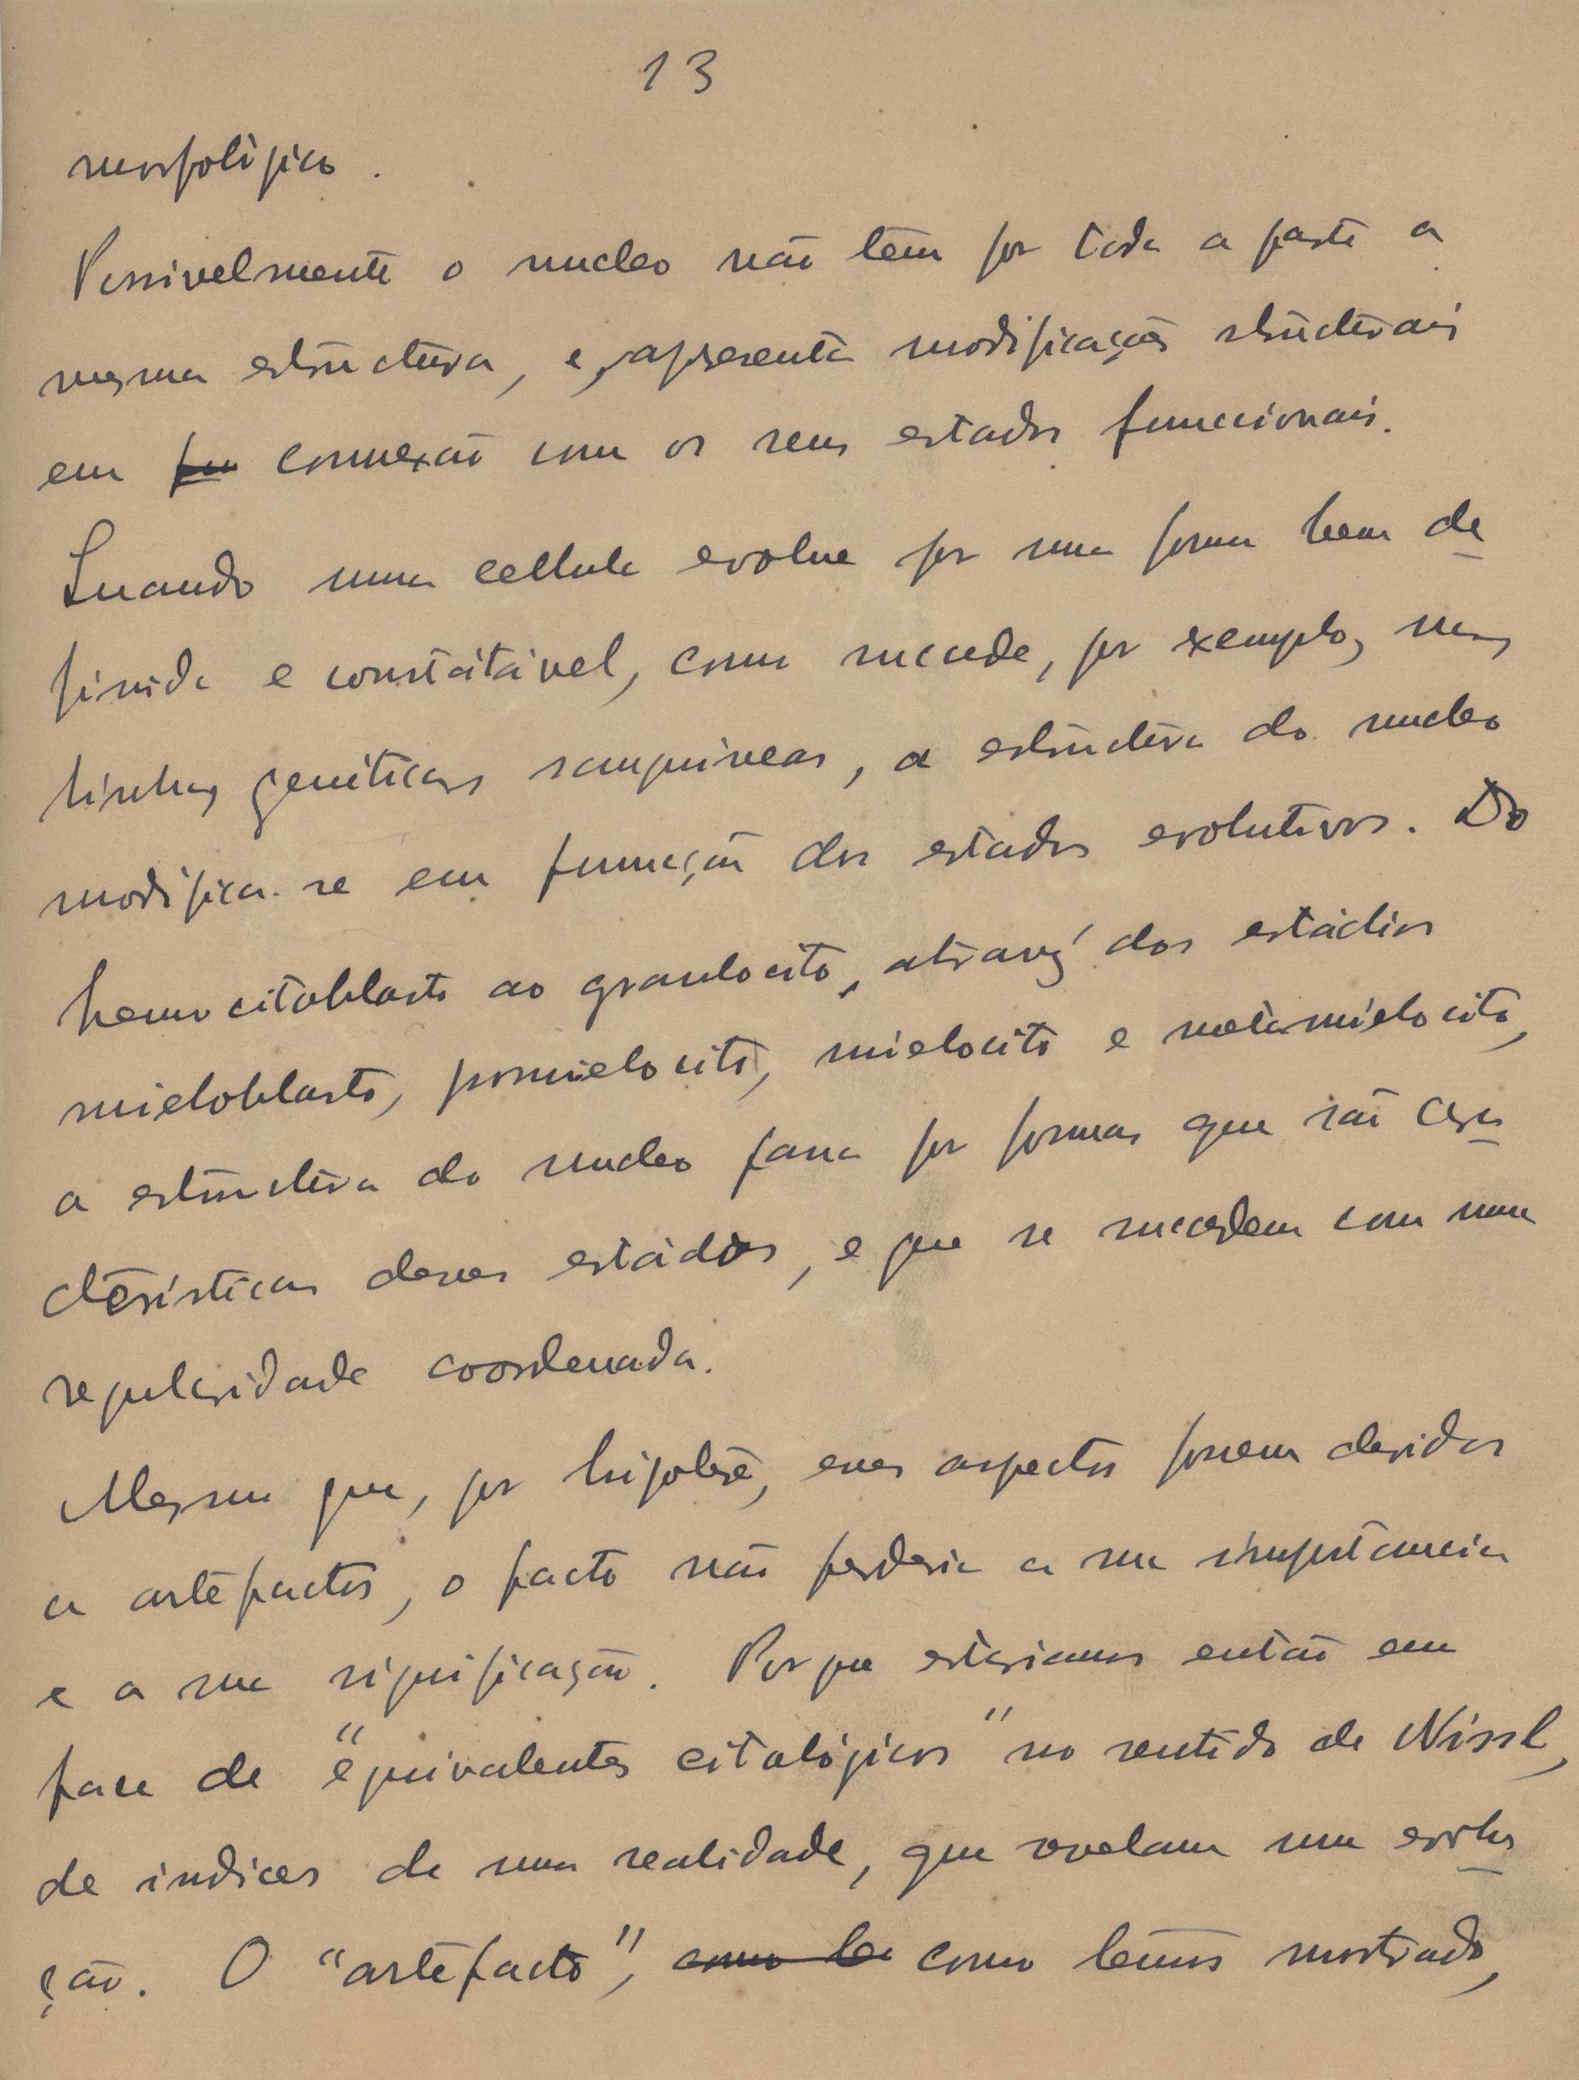 13
morfológico.
Possivelmente o nucleo não têm por toda a parte a
mesma estructura, e apresenta modificações structurais
em connexão com os seus estados funccionais.
Quando uma cellula evolue por uma forma bem de
finida e constatável, como succede, por exemplo, nas
linhas genéticas sanguineas, a estructura do nucleo
modifica-se em funcção dos estados evolutivos. Do
hemocitoblasto ao granulocito, através dos estádios
mieloblasto, promielocito, mielocito e metamielocito,
a estructura do nucleo passa por formas que são cara
cterísticas desses estádios, e que se succedem com uma
regularidade coordenada.
Mesmo que, por hipotese, esses aspectos fossem devidos
a artefactos, o facto não perderia a sua importancia
e a sua significação. Porque estariamos então em
face de "equivalentes citológicos" no sentido de Nissl,
de indices de uma realidade, que revelam uma evolu
ção. O "artefacto", como temos mostrado,